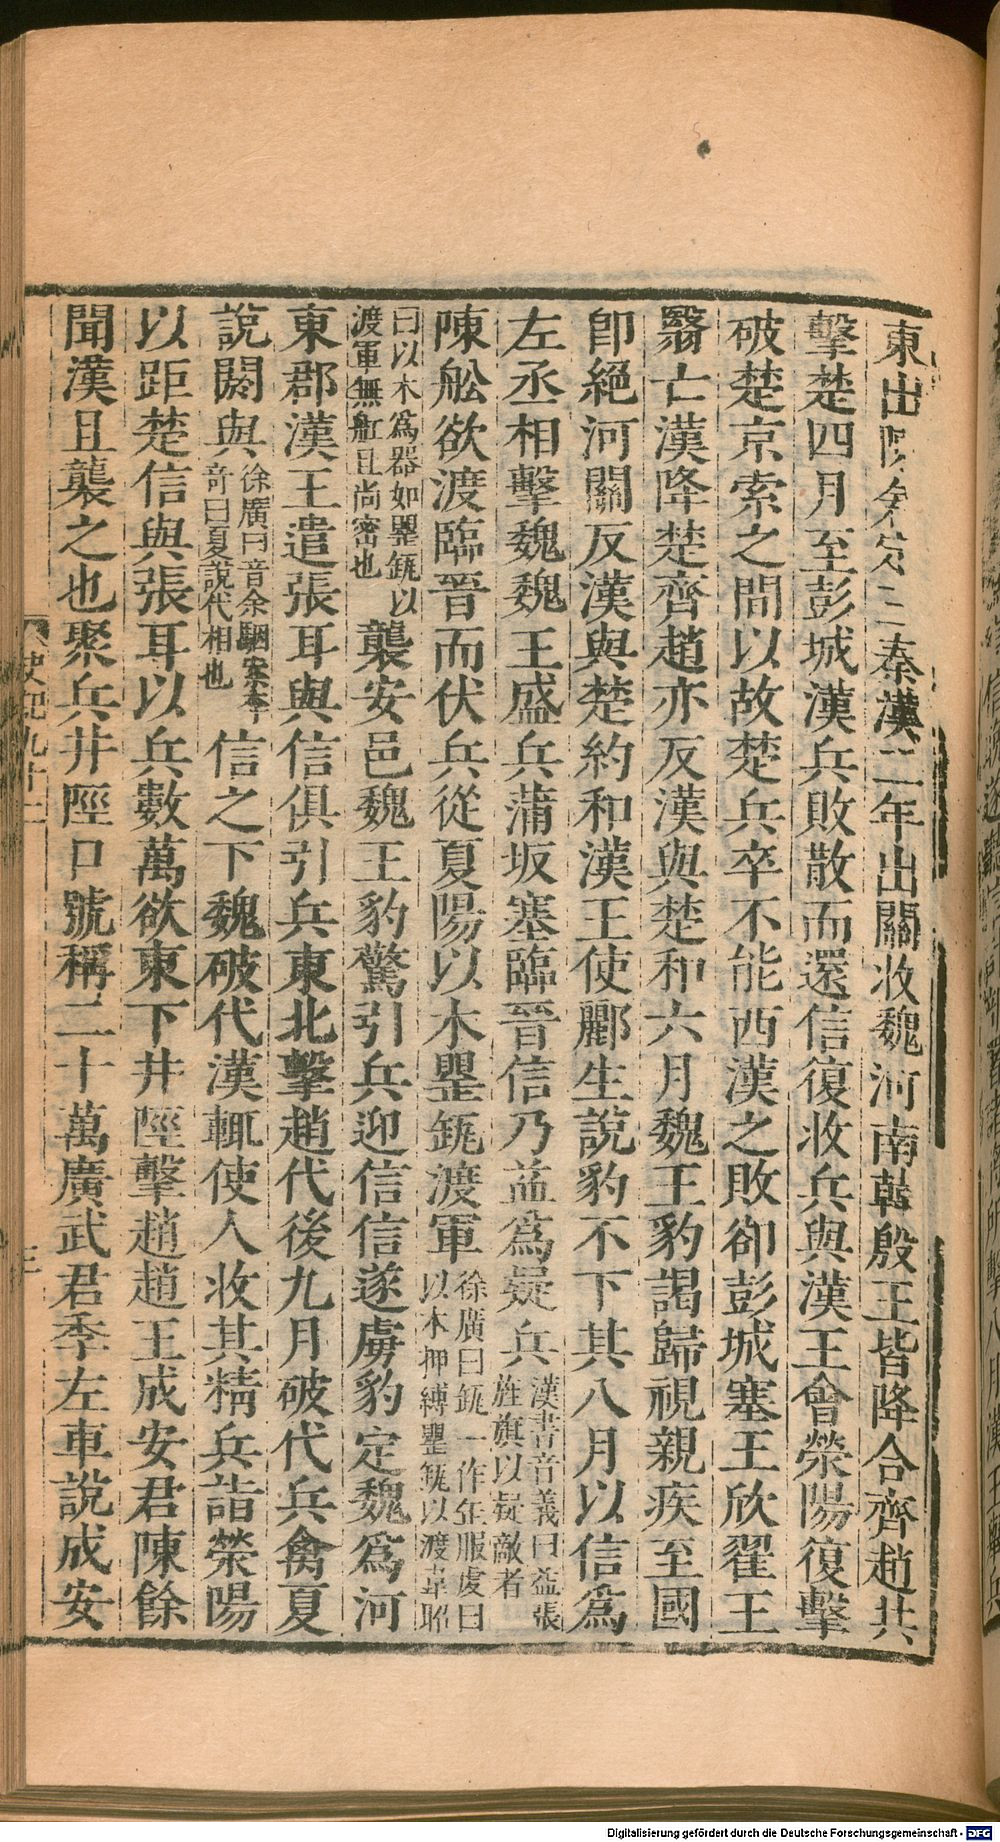 東出陳倉定三秦漢二年出關收魏河南韓殷王皆降合齊趙共
擊楚四月至彭城漢兵敗散而還信復收兵與漢王會滎陽復擊
破楚京索之間以故楚兵卒不能西漢之敗卻彭城塞王欣翟王
翳亡漢降楚齊趙亦反漢與楚和六月魏王豹謁歸視親疾至國
卽絕河關反漢與楚約和漢王使酈生說豹不下其八月以信爲
左丞相擊魏魏王盛兵蒲坂塞臨晉信乃益爲疑兵漢書音義曰益張旌旗以疑敵者
陳舩欲渡臨晉而伏兵從夏陽以木罌缻渡軍徐廣曰缻一作缶服虔曰以木押縛罌缻以渡韋昭
曰以木爲器如罌缻以渡軍無舩且尚密也襲安邑魏王豹驚引兵迎信信遂虜豹定魏爲河
東郡漢王遣張耳與信俱引兵東北擊趙代後九月破代兵禽夏
說閼與徐廣曰音余駰案李奇曰夏說代相也信之下魏破代漢輒使人收其精兵詣滎陽
以距楚信與張耳以兵數萬欲東下井陘擊趙趙王成安君陳餘
聞漢且襲之也聚兵井陘口號稱二十萬廣武君李左車說成安
史記九十二
三
Digitalisierung gefördert durch die Deutsche Forschungsgemeinschaft - DFG